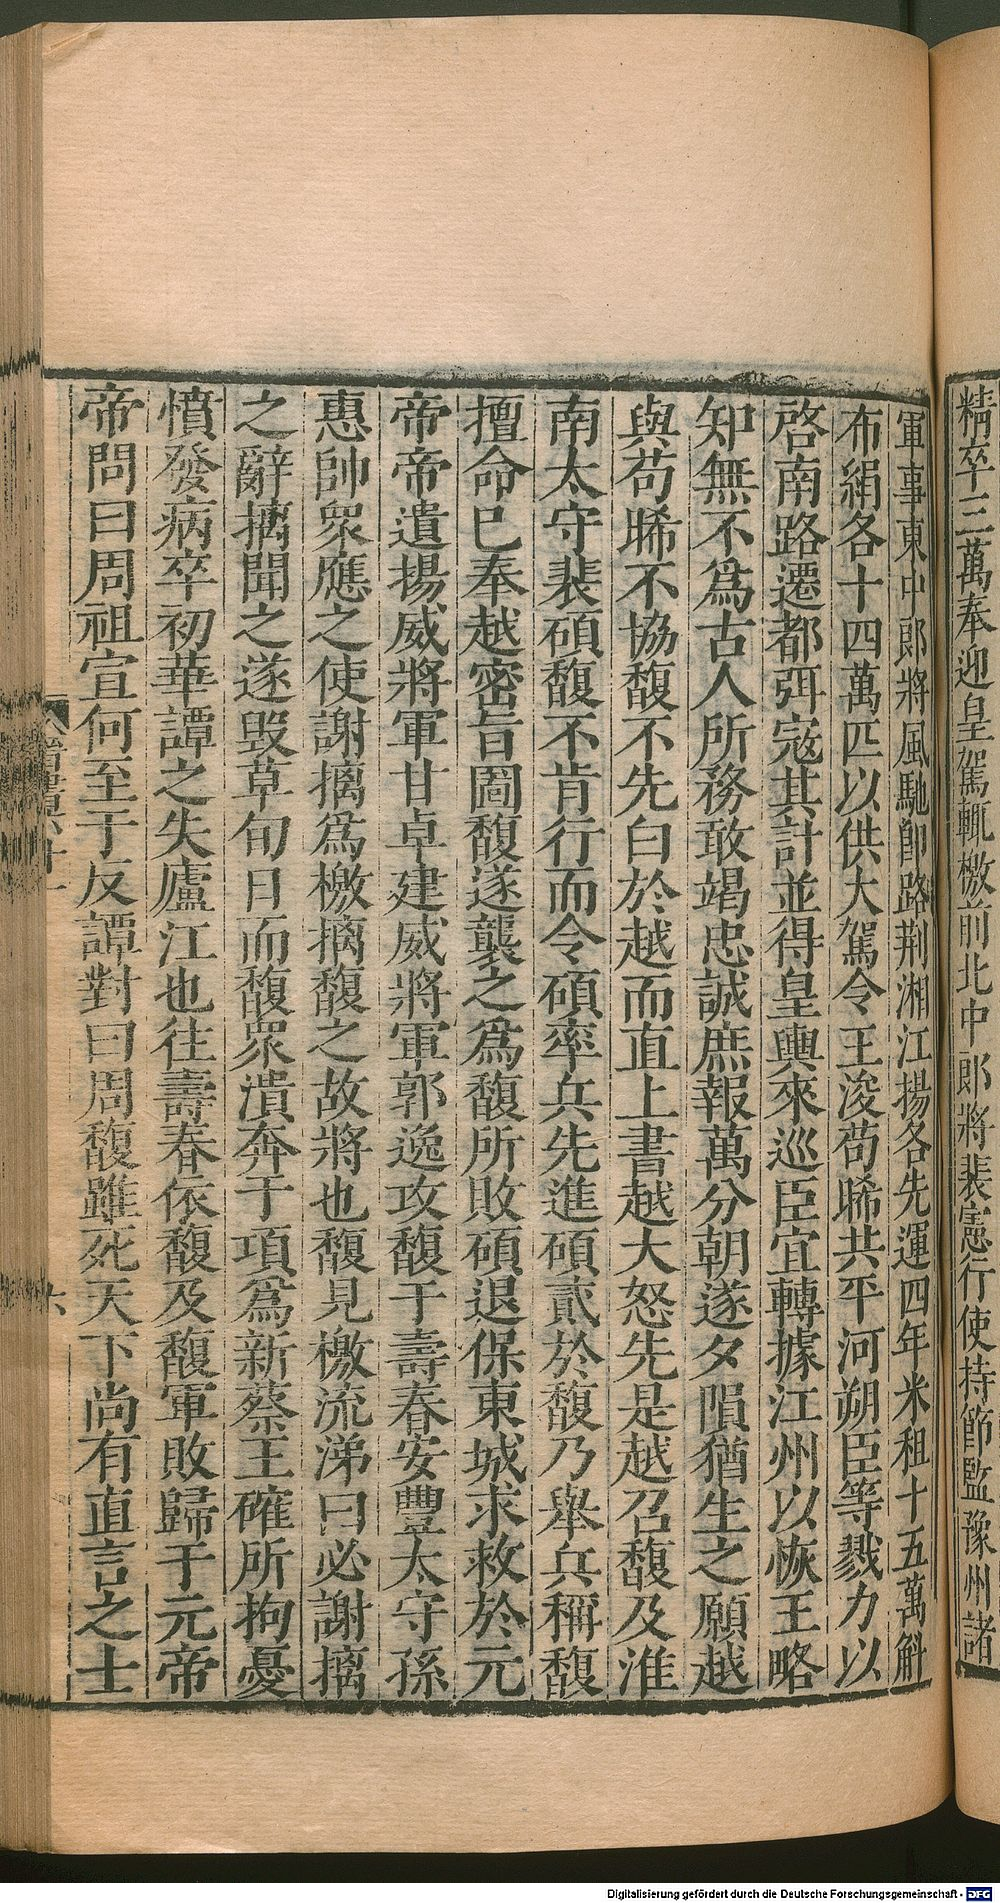 精卒三萬奉迎皇駕輒檄前北中郎將裴憲行使持節監豫州諸
軍事東中郎將風馳即路荆湘江揚各先運四年米租十五萬斛
布絹各十四萬匹以供大駕令王浚苟晞共平河朔臣等戮力以
啓南路遷都弭寇其計並得皇輿來巡臣宜轉據江州以恢王略
知無不爲古人所務敢竭忠誠庶報萬分朝遂夕隕猶生之願越
與苟晞不協馥不先白於越而直上書越大怒先是越召馥及淮
南太守裴碩馥不肯行而令碩率兵先進碩貳於馥乃舉兵稱馥
擅命已奉越密旨圖馥遂襲之爲馥所敗碩退保東城求救於元
帝帝遣揚威將軍甘卓建威將軍郭逸攻馥于壽春安豐太守孫
惠帥衆應之使謝摛爲檄摛馥之故將也馥見檄流涕曰必謝摛
之辭摛聞之遂毀草旬日而馥衆潰奔于項爲新蔡王確所拘憂
憤發病卒初華譚之失廬江也往壽春依馥及馥軍敗歸于元帝
帝問曰周祖宣何至于反譚對曰周馥雖死天下尚有直言之士
六
Digitalisierung gefördert durch die Deutsche Forschungsgemeinschaft - DFG